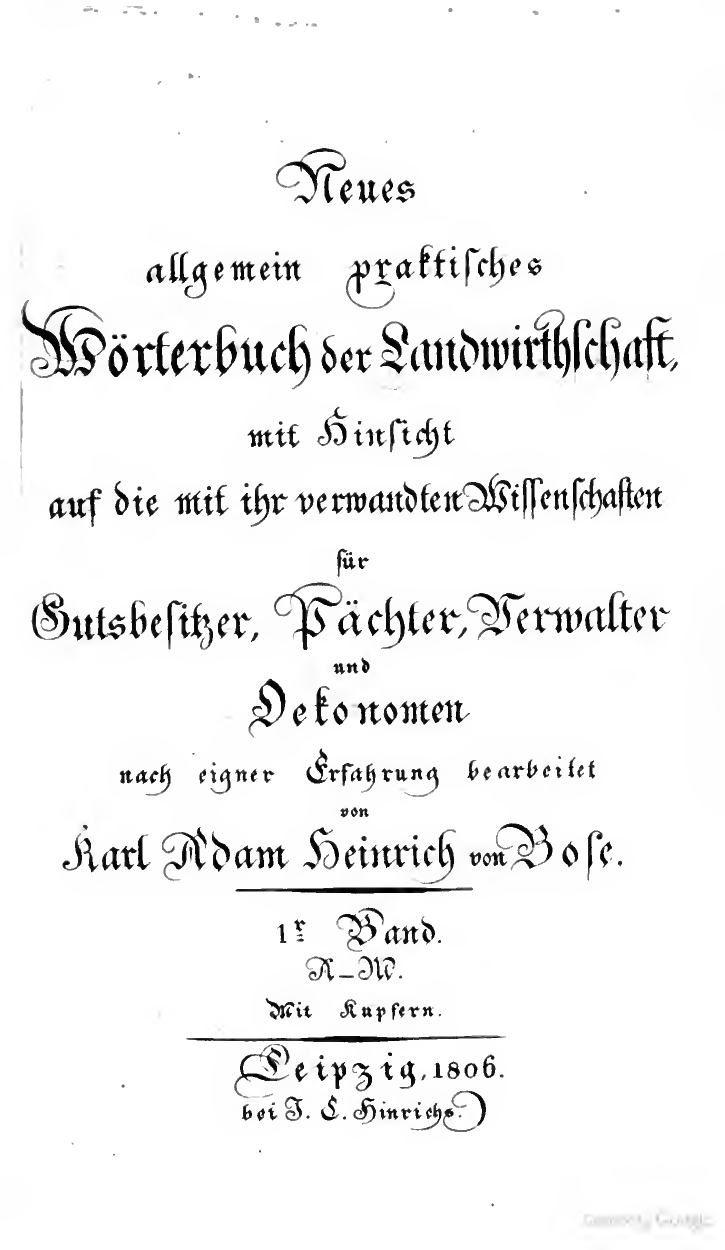 Neues
allgemein praktisches
Wörterbuch der Landwirthschaft,
mit Hinsicht
auf die mit ihr verwandten Wissenschaften
für
Gutsbesitzer, Pächter, Verwalter
und
Oekonomen
nach eigner Erfahrung bearbeitet
von
Karl Adam Heinrich von Bose.
1r Band.
A–M.
Mit Kupfern.
Leipzig, 1806.
bei J. C. Hinrichs.